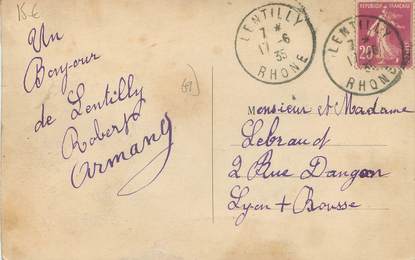 15€
Un
Bonjour
de Lentilly
Robert
Armand
(69)
LENTILLY
7 *
17 -6
35
RHONE
REPUBLIQUE FRANÇAISE
20
LENTILLY
RHONE
Monsieur et Madame
Lebraud
2 Rue Dangon
Lyon + Rousse